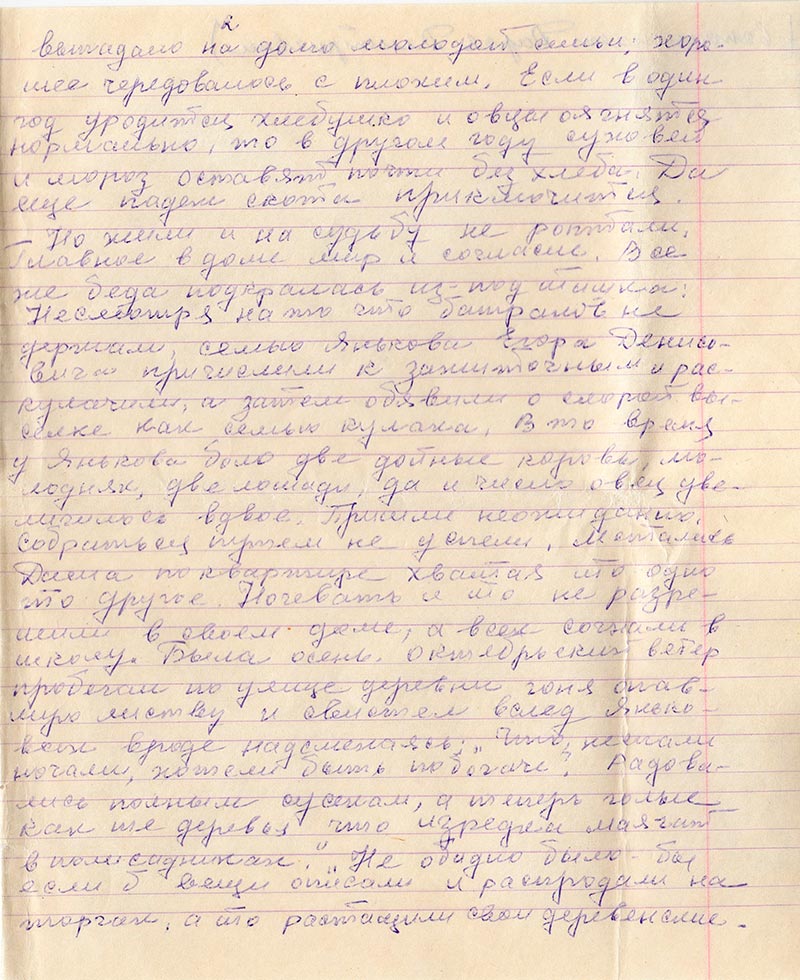 2
выпадало на долю молодой семьи; хоро-
шее чередовалось с плохим. Если в один
год уродится хлебушко и овцы оягнятся
нормально, то в другом году суховей
и мороз оставят почти без хлеба. Да
еще падеж скота приключится.
– Но жили и на судьбу не роптали.
Главное в доме мир и согласие. Все
же беда подкралась из-под тишка:
Несмотря на то что батраков не
держали, семью Янькова Егора Денисо-
вича причислили к зажиточным и рас-
кулачили, а затем обявили о скорой вы-
селке как семью кулака. В то время
у Янькова было две дойные коровы, мо-
лодняк, две лошади, да и число овец уве-
личилось вдвое. Пришли неожиданно,
собраться путем не успели. Металась
Даша по квартире хватая то одно
то другое. Ночевать и то не разре-
шили в своем доме, а всех согнали в
школу. Была осень. Октябрьский ветер
пробегал по улице деревни гоня опав-
шую листву и свистел вслед Янько-
вых вроде надсмехаясь: „Что, не спали
ночами, хотели быть побогаче? Радова-
лись полным сусекам, а теперь голые
как те деревья что изредка маячат
в полисадниках." „Не обидно было-бы
если б вещи описали и распродали на
торгах, а то растащили свои деревенские.